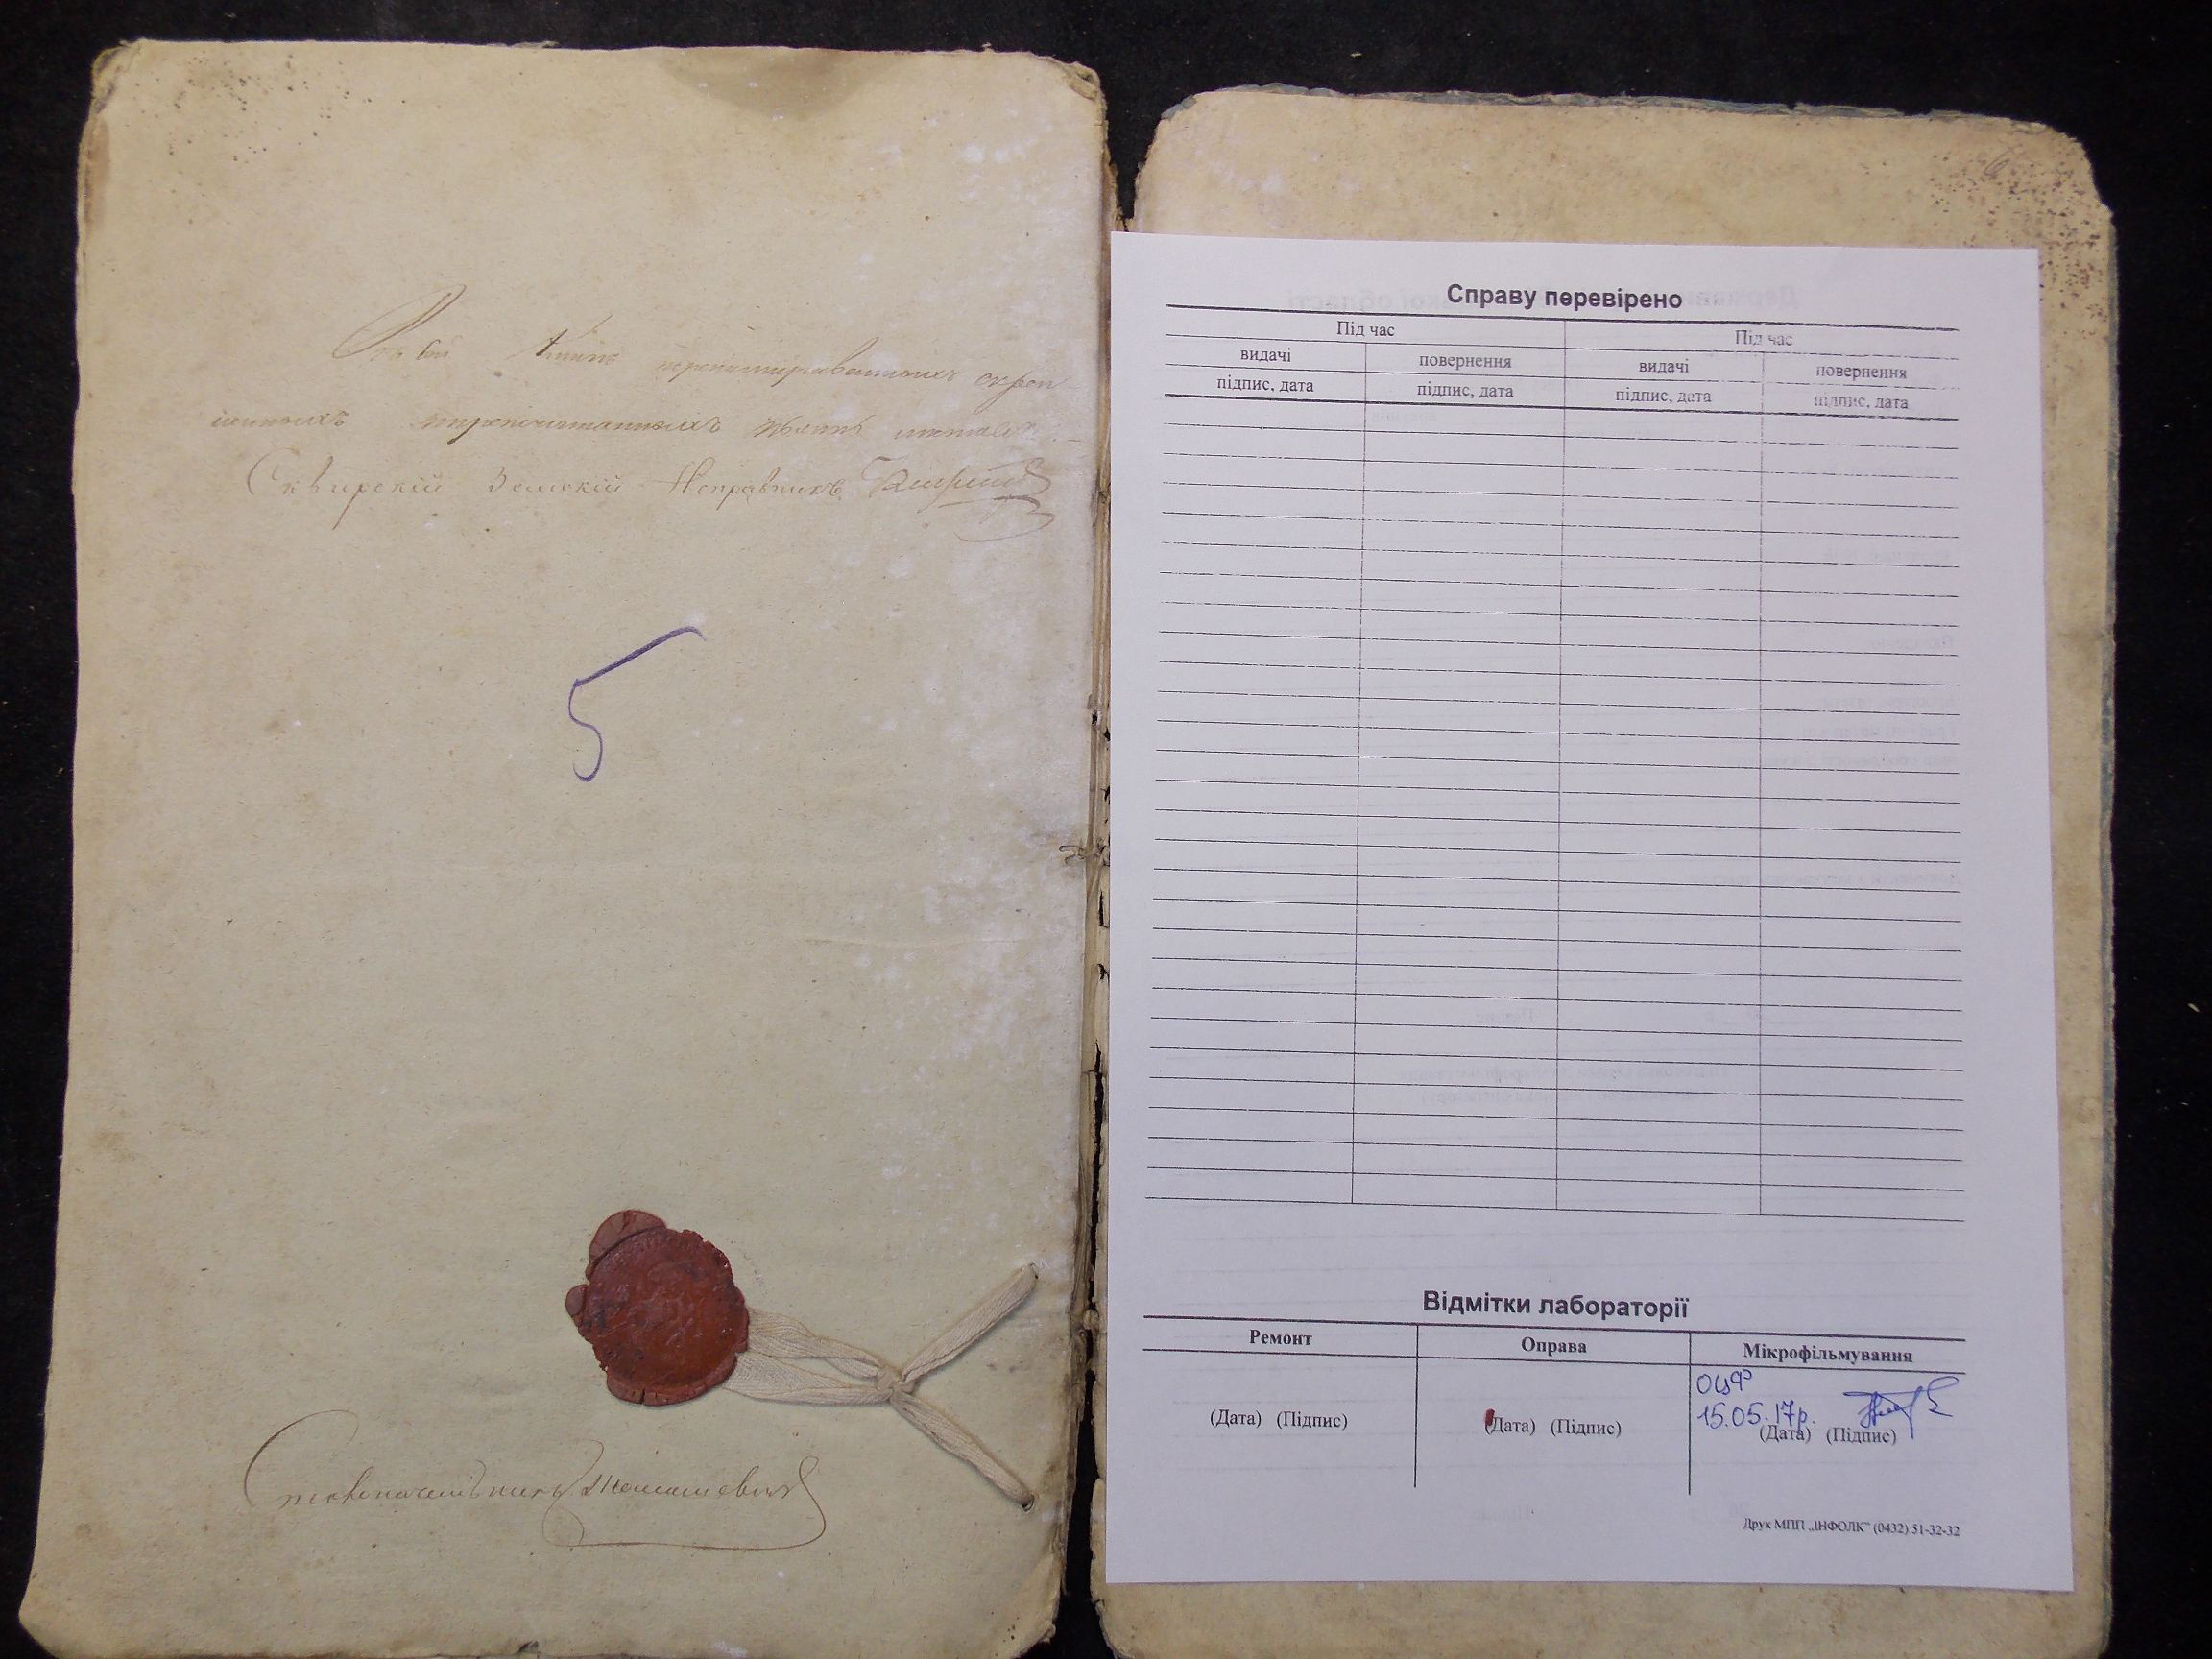 Въ сей Книгѣ пронумерованныхъ скреп-
ленныхъ
Сквирскій Земскій Исправникъ
5
Столоначальникъ
Справу перевірено
Під час Під час
видачі повернення видачі повернення
підпис, дата підпис, дата підпис, дата підпис, дата
Відмітки лабораторії
Ремонт Оправа Мікрофільмування
Оцф
15.05.17р.
(Дата) (Підпис) (Дата) (Підпис) (Дата) (Підпис)
Друк МПП „ІНФОЛК” (0432) 51-32-32